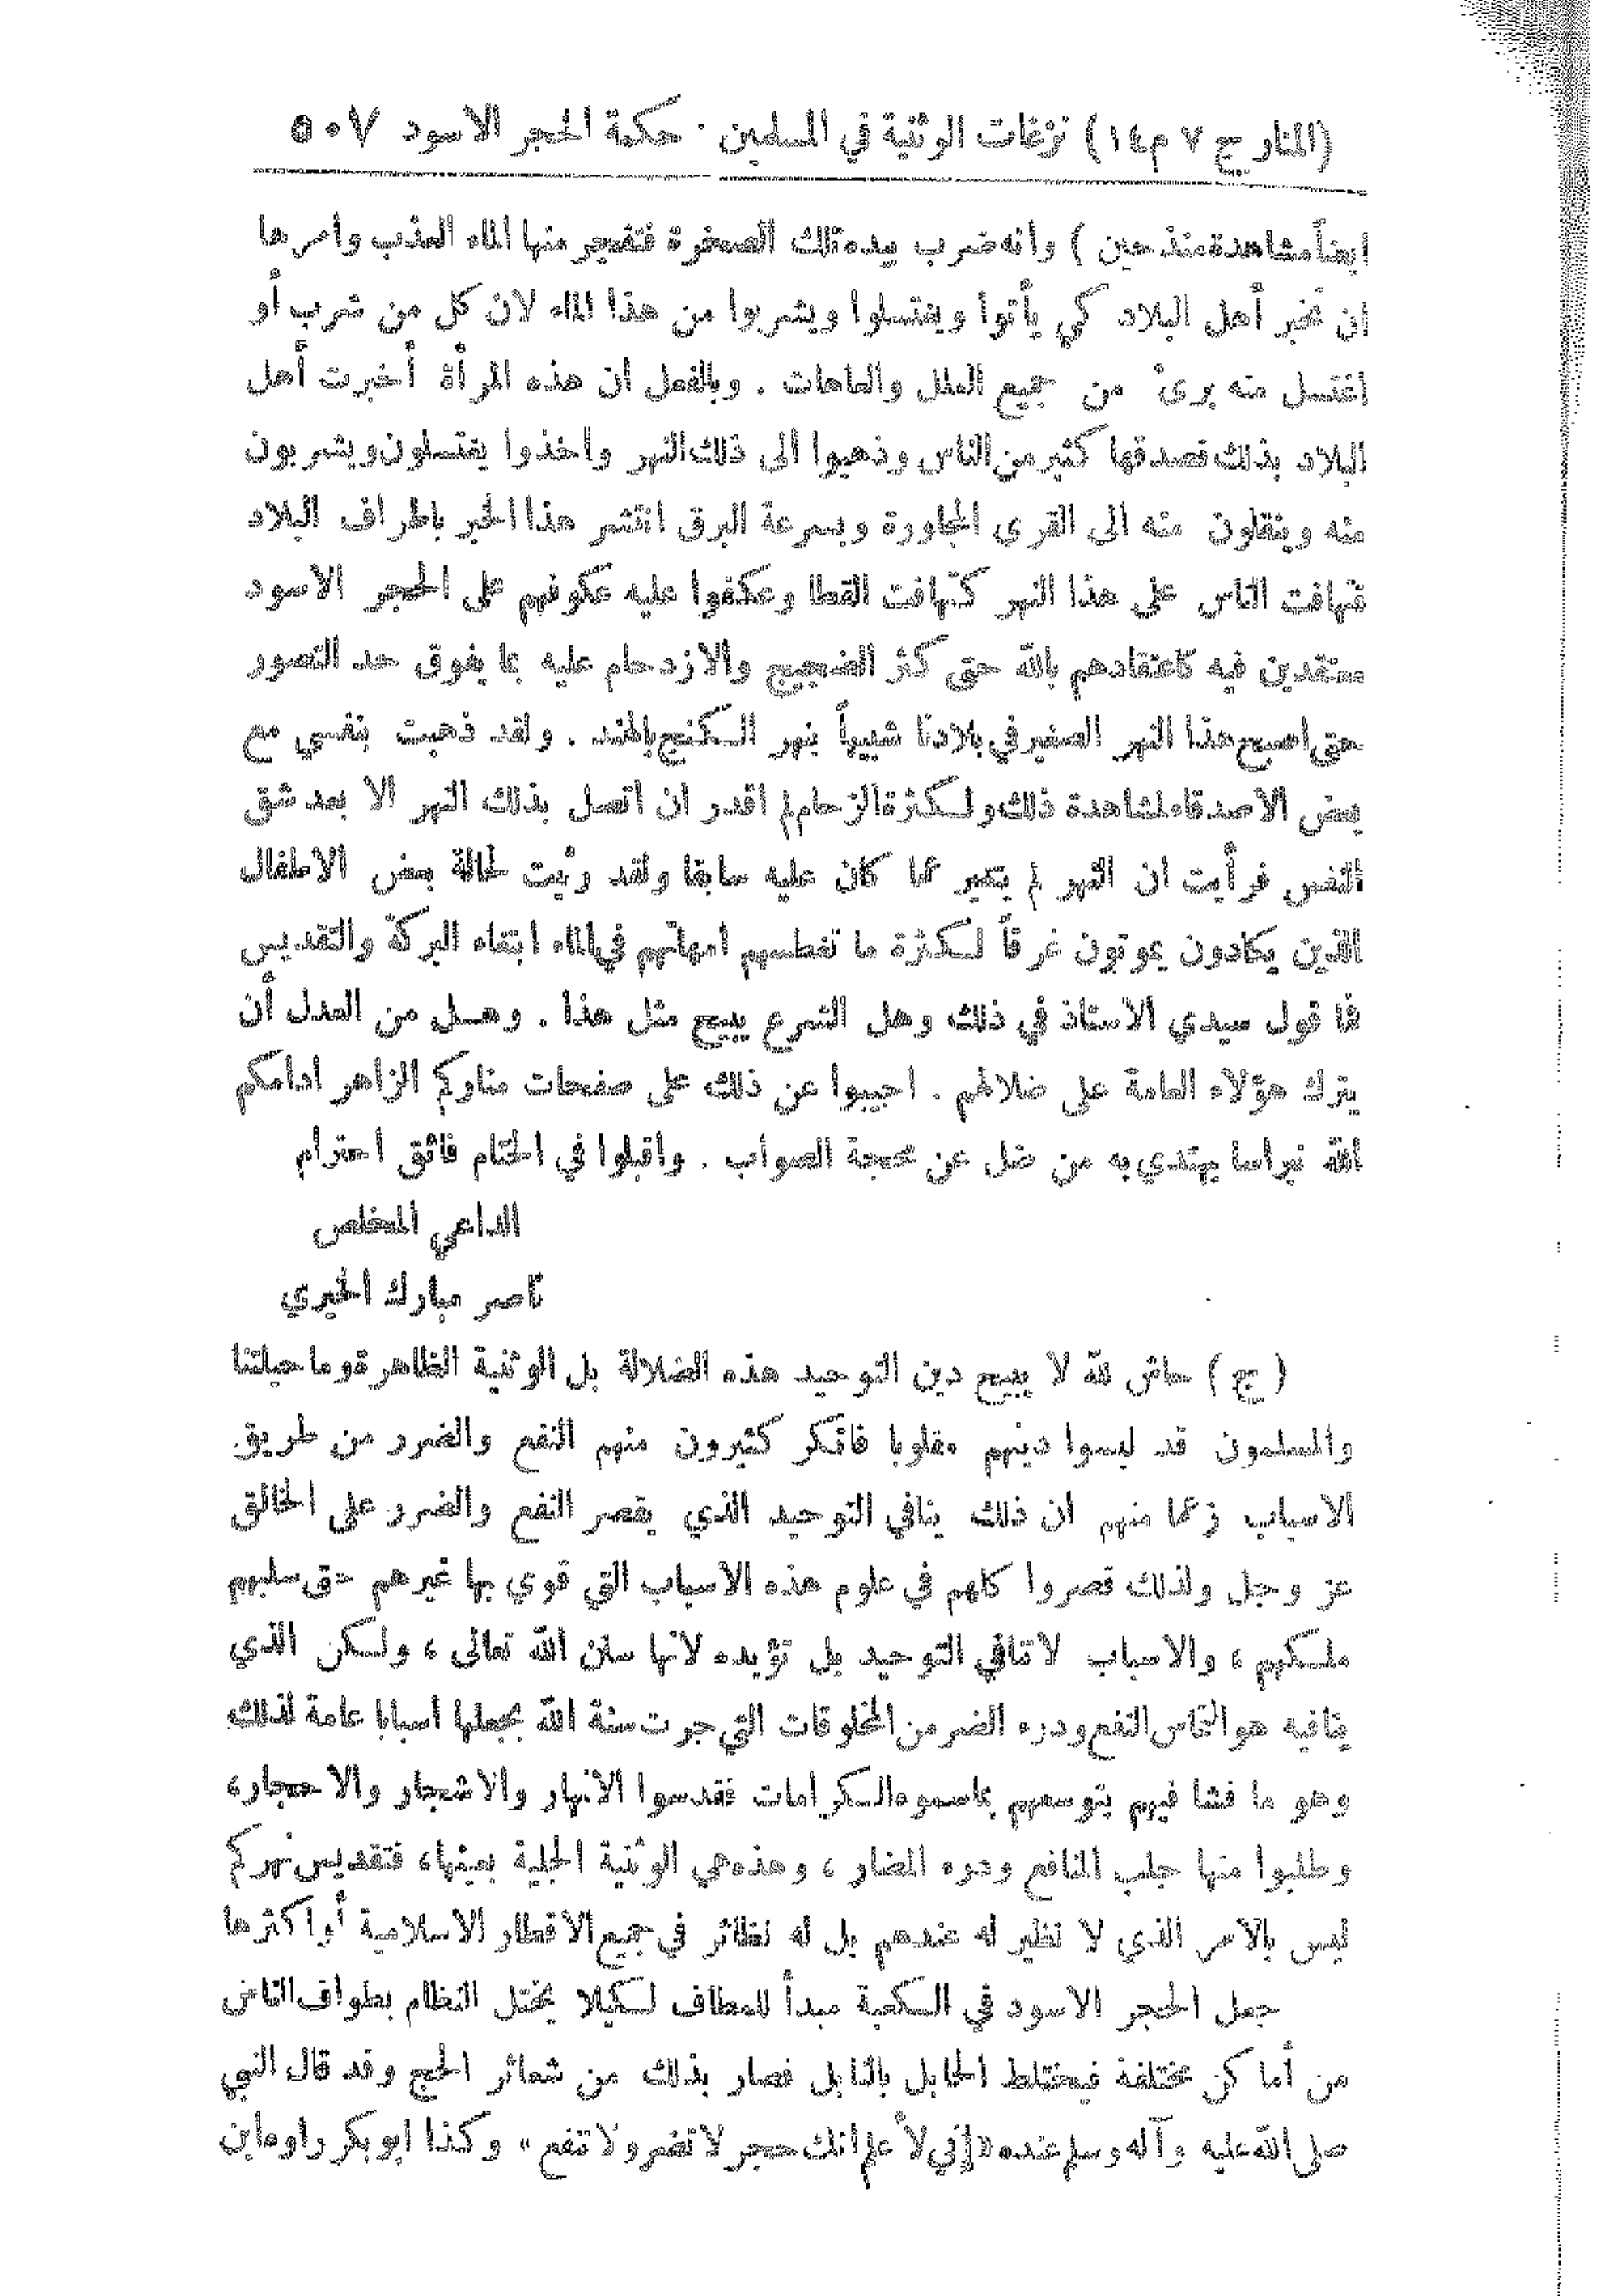 (المنار ج ٧ م١٤) نزغات الوثنية في المسلمين . حكمة الحجر الاسود ٥٠٧
ايضاً مشاهدة منذ حين ) وانه ضرب بيده تلك الصخرة فتفجر منها الماء العذب وامرها
ان تخبر أهل البلاد كي يأتوا ويغتسلوا ويشربوا من هذا الماء لان كل من شرب أو
اغتسل منه برئ من جميع العلل والعاهات . وبالفعل ان هذه المرأة أخبرت أهل
البلاد بذلك فصدقها كثير من الناس وذهبوا الى ذلك النهر واخذوا يغتسلون ويشربون
منه وينقلون منه الى القرى المجاورة وبسرعة البرق انتشر هذا الخبر باطراف البلاد
فتهافت الناس على هذا النهر كتهافت القطا وعكفوا عليه عكوفهم على الحجر الاسود
معتقدين فيه كاعتقادهم بالله حتى كثر الضجيج والازدحام عليه بما يفوق حد التصور
حتى اصبح هذا النهر الصغير في بلادنا شبيهاً بنهر الكنج بالهند . ولقد ذهبت بنفسي مع
بعض الاصدقاء لمشاهدة ذلك ولكثرة الزحام لم اقدر ان اتصل بذلك النهر الا بعد شق
النفس فرأيت ان النهر لم يتغير عما كان عليه سابقا ولقد رثيت لحالة بعض الاطفال
الذين يكادون يموتون غرقاً لكثرة ما تغطسهم امهاتهم في الماء ابتغاء البركة والتقديس
فما قول سيدي الاستاذ في ذلك وهل الشرع يبيح مثل هذا . وهل من العدل أن
يترك هؤلاء العامة على ضلالهم . اجيبوا عن ذلك على صفحات مناركم الزاهر ادامكم
الله نبراسا يهتدي به من ضل عن محجة الصواب . واقبلوا في الختام فائق احترام
الداعي المخلص
ناصر مبارك الخيري
( ج ) حاش لله لا يبيح دين التوحيد هذه الضلالة بل الوثنية الظاهرة وما حيلتنا
والمسلمون قد لبسوا دينهم مقلوبا فانكر كثيرون منهم النفع والضرر من طريق
الاسباب زعما منهم ان ذلك ينافي التوحيد الذي يقصر النفع والضرر على الخالق
عز وجل ولذلك قصروا كلهم في علوم هذه الاسباب التي قوي بها غيرهم حتى سلبهم
ملكهم ، والاسباب لا تنافي التوحيد بل تؤيده لانها سنن الله تعالى ، ولكن الذي
ينافيه هو التماس النفع ودرء الضر من المخلوقات التي جرت سنة الله بجعلها اسبابا عامة لذلك
وهو ما فشا فيهم بتوسعهم بما سموه الكرامات فقدسوا الانهار والاشجار والاحجار،
وطلبوا منها جلب المنافع ودرء المضار ، وهذه هي الوثنية الجلية بعينها، فتقديس نهركم
ليس بالامر الذي لا نظير له عندهم بل له نظائر في جميع الاقطار الاسلامية أو اكثرها
جعل الحجر الاسود في الكعبة مبدأ للمطاف لكيلا يختل النظام بطواف الناس
من أماكن مختلفة فيختلط الحابل بالنابل فصار بذلك من شعائر الحج وقد قال النبي
صلى الله عليه وآله وسلم عنده «إني لأعلم انك حجر لا تضر ولا تنفع» وكذا ابو بكر رواه ابن